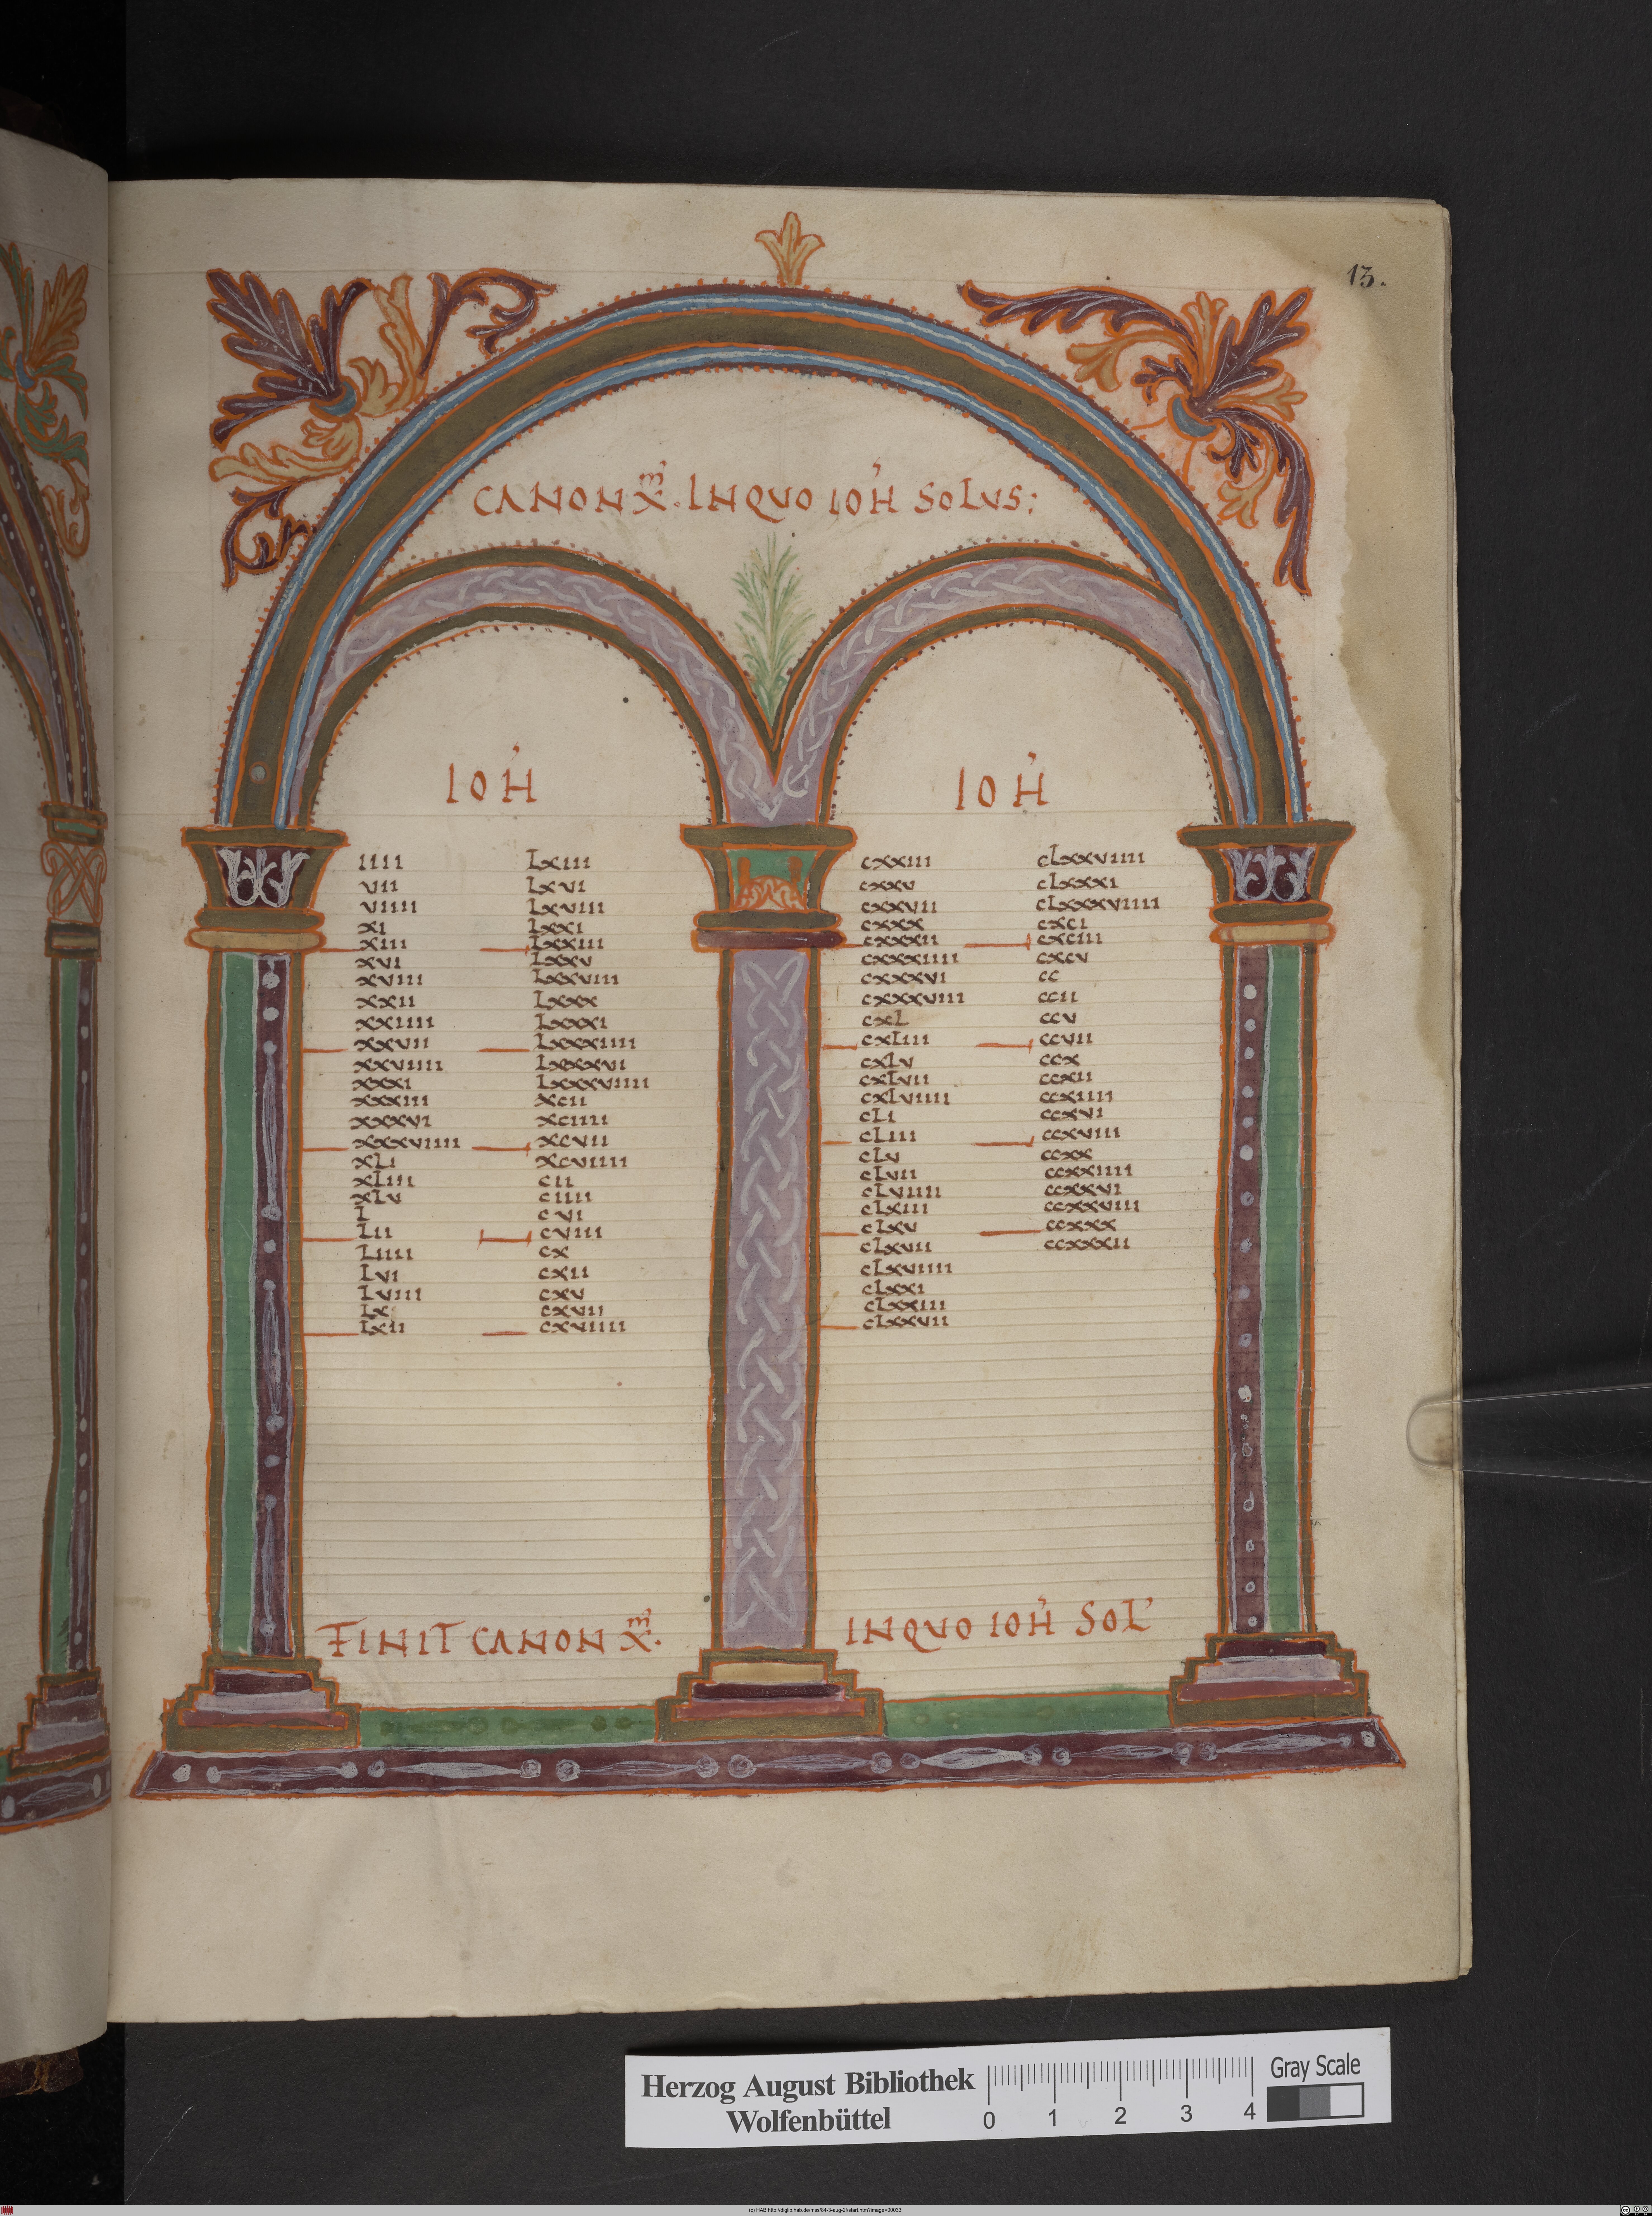 13.
CANON X͞m. INQUO IOH̓ SOLUS:
IOH̓
IOH̓
IIII
VII
VIIII
XI
XIII
XVI
XVIIII
XXII
XXIIII
XXVII
XXVIIII
XXXI
XXXIII
XXXVI
XXXVIIII
XLI
XLIII
XLV
L
LII
LIIII
LVI
LVIII
LX
LXII
LXIII
LXVI
LXVIII
LXXI
LXXIII
LXXV
LXXVIII
LXXX
LXXXI
LXXXIIII
LXXXVI
LXXXVIIII
XCII
XCIIII
XCVII
XCVIIII
CII
CIIII
CVI
CVIII
CX
CXII
CXV
CXVII
CXVIIII
CXXIII
CXXV
CXXVII
CXXX
CXXXII
CXXXIIII
CXXXVI
CXXXVIII
CXL
CXLIII
CXLV
CXLVII
CXLVIIII
CLI
CLIII
CLV
CLVII
CLVIIII
CLXIII
CLXV
CLXVII
CLXVIIII
CLXXI
CLXXIII
CLXXVII
CLXXVIIII
CLXXXI
CLXXXVIIII
CXCI
CXCIII
CXCV
CC
CCII
CCV
CCVII
CCX
CCXII
CCXIIII
CCXVI
CCXVIII
CCXX
CCXXIIII
CCXXVI
CCXXVIII
CCXXX
CCXXXII
FINIT CANON X͞m.
INQUO IOH̓ SOL̓
Herzog August Bibliothek
Wolfenbüttel
0 1 2 3 4
Gray Scale
(c) HAB http://diglib.hab.de/mss/84-3-aug-2f/start.htm?image=00033